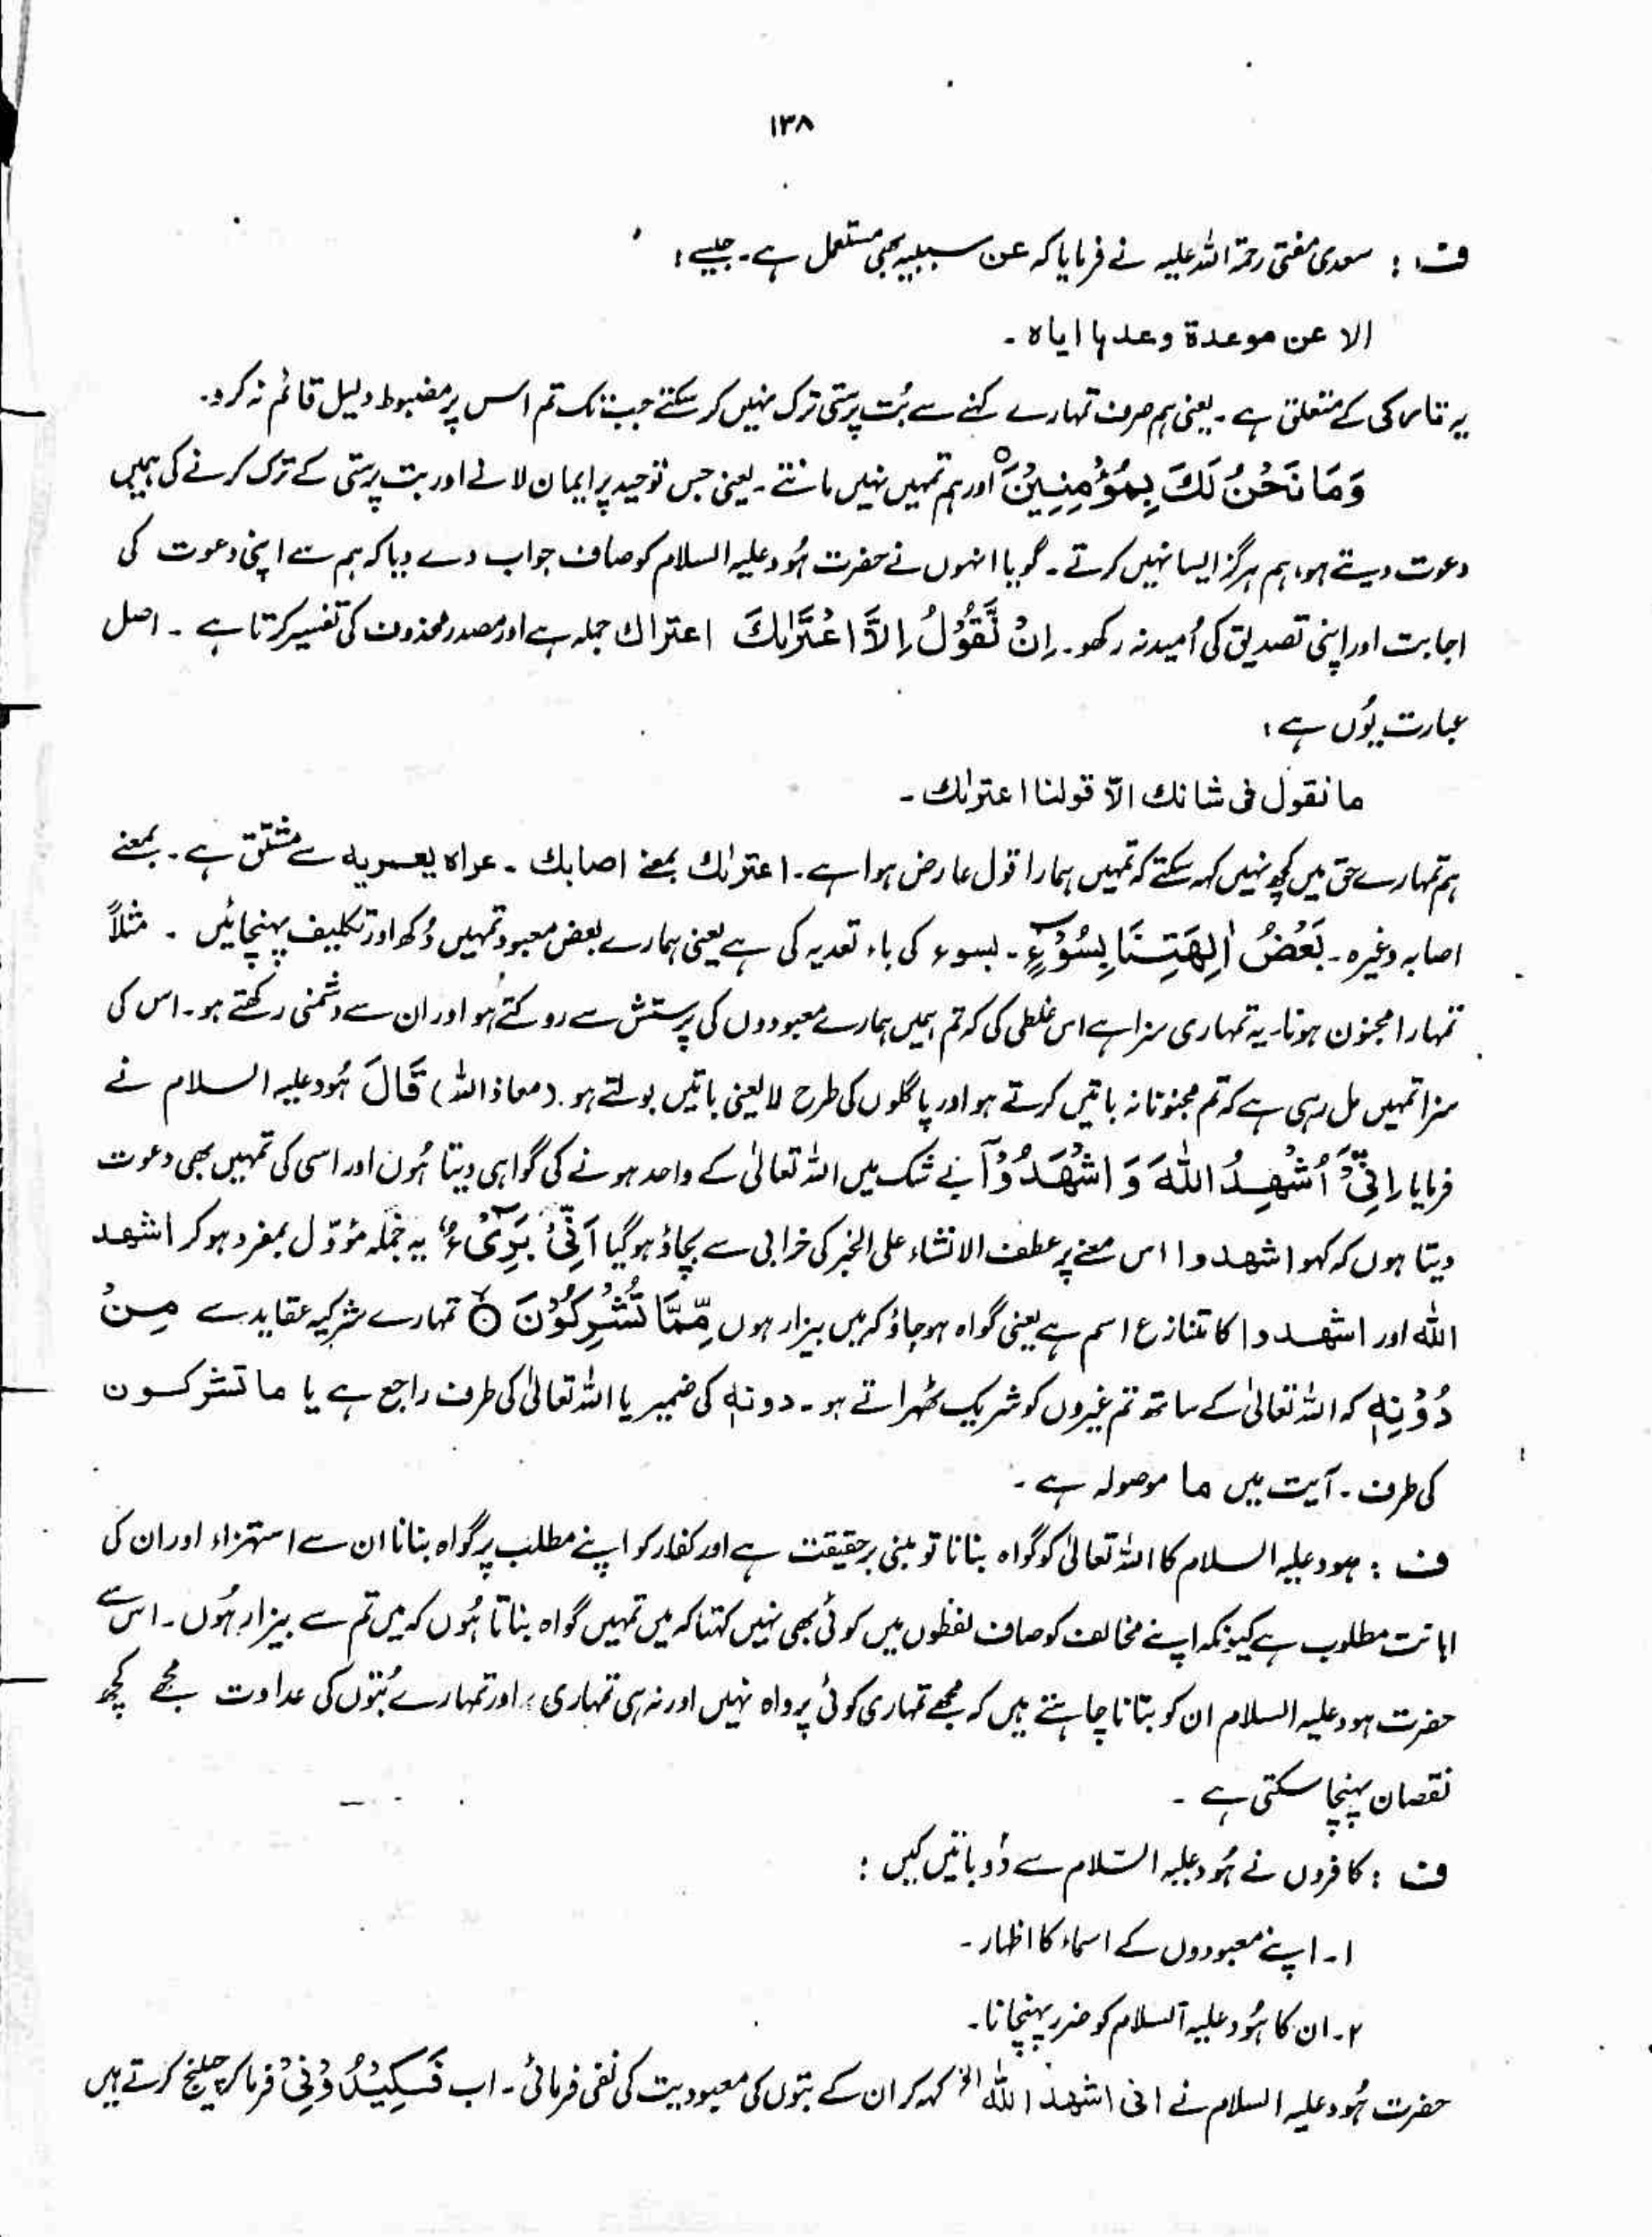 ١٣٨
ف : سعدی مفتی رحمۃ اللہ علیہ نے فرمایا کہ عن سببیہ بھی مستعمل ہے۔ جیسے :
الا عن موعدة وعدہا ایاہ ۔
یہ تارکی کے متعلق ہے ۔ یعنی ہم صرف تمہارے کہنے سے بُت پرستی ترک نہیں کر سکتے جب تک تم اس پر مضبوط دلیل قائم نہ کرو۔
وَمَا نَحْنُ لَكَ بِمُؤْمِنِيْنَ ○ اور ہم تمہیں نہیں مانتے ۔ یعنی جس توحید پر ایمان لانے اور بت پرستی کے ترک کرنے کی ہمیں
دعوت دیتے ہو، ہم ہرگز ایسا نہیں کرتے ۔ گویا انہوں نے حضرت ہُود علیہ السلام کو صاف جواب دے دیا کہ ہم سے اپنی دعوت کی
اجابت اور اپنی تصدیق کی اُمید نہ رکھو۔ اِنْ نَّقُوْلُ اِلَّا اعْتَرٰىكَ اعتراك جملہ ہے اور مصدر محذوف کی تفسیر کرتا ہے ۔ اصل
عبارت یُوں ہے :
ما نقول فی شانك الاّ قولنا اعترٰىك ۔
ہم تمہارے حق میں کچھ نہیں کہہ سکتے کہ تمہیں ہمارا قول عارض ہوا ہے۔ اعترٰىك بمعنے اصابك ۔ عراہ یعـریہ سے مشتق ہے ۔ بمعنے
اصابہ وغیرہ ۔ بَعْضُ اٰلِهَتِنَا بِسُوْٓءٍ ۔ بسوء کی باء تعدیہ کی ہے یعنی ہمارے بعض معبود تمہیں دُکھ اور تکلیف پہنچائیں ۔ مثلاً
تمہارا مجنون ہونا۔ یہ تمہاری سزا ہے اس غلطی کی کہ تم ہمیں ہمارے معبودوں کی پرستش سے روکتے ہو اور ان سے دشمنی رکھتے ہو۔ اس کی
سزا تمہیں مل رہی ہے کہ تم مجنونانہ باتیں کرتے ہو اور پاگلوں کی طرح لایعنی باتیں بولتے ہو۔ (معاذ اللہ) قَالَ ہُود علیہ السلام نے
فرمایا اِنِّيْٓ اُشْهِدُ اللّٰهَ وَ اشْهَدُوْٓا بے شک میں اللہ تعالیٰ کے واحد ہونے کی گواہی دیتا ہُوں اور اسی کی تمہیں بھی دعوت
دیتا ہوں کہ کہو اشھدوا اس معنے پر عطف الانشاء علی الخبر کی خرابی سے بچاؤ ہوگیا اَنِّيْ بَرِيْٓءٌ یہ جملہ مؤوّل بمفرد ہو کر اشھد
اللہ اور اشھدوا کا تنازع اسم ہے یعنی گواہ ہو جاؤ کہ میں بیزار ہوں مِّمَّا تُشْرِكُوْنَ ○ تمہارے شرکیہ عقاید سے مِنْ
دُوْنِهٖ کہ اللہ تعالیٰ کے ساتھ تم غیروں کو شریک ٹھہراتے ہو ۔ دونہٖ کی ضمیر یا اللہ تعالیٰ کی طرف راجع ہے یا ما تشركون
کی طرف ۔ آیت میں ما موصولہ ہے ۔
ف : ہود علیہ السلام کا اللہ تعالیٰ کو گواہ بنانا تو مبنی بر حقیقت ہے اور کفار کو اپنے مطلب پر گواہ بنانا ان سے استہزاء اور ان کی
اہانت مطلوب ہے کیونکہ اپنے مخالف کو صاف لفظوں میں کوئی بھی نہیں کہتا کہ میں تمہیں گواہ بناتا ہُوں کہ میں تم سے بیزار ہُوں ۔ اس سے
حضرت ہود علیہ السلام ان کو بتانا چاہتے ہیں کہ مجھے تمہاری کوئی پرواہ نہیں اور نہ ہی تمہاری اور تمہارے بُتوں کی عداوت مجھے کچھ
نقصان پہنچا سکتی ہے ۔
ف : کافروں نے ہُود علیہ السّلام سے دُو باتیں کیں :
١ - اپنے معبودوں کے اسماء کا اظہار ۔
٢ - ان کا ہُود علیہ السلام کو ضرر پہنچانا۔
حضرت ہُود علیہ السلام نے انی اشھد اللہ الخ کہہ کر ان کے بتوں کی معبودیت کی نفی فرمائی ۔ اب فَكِيْدُوْنِيْ فرما کر چیلنج کرتے ہیں